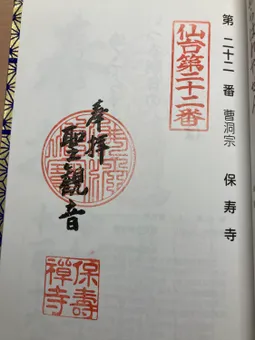 第二十二番 曹洞宗 保寿寺
仙台第二十二番
奉拝
聖観音
保壽禅寺